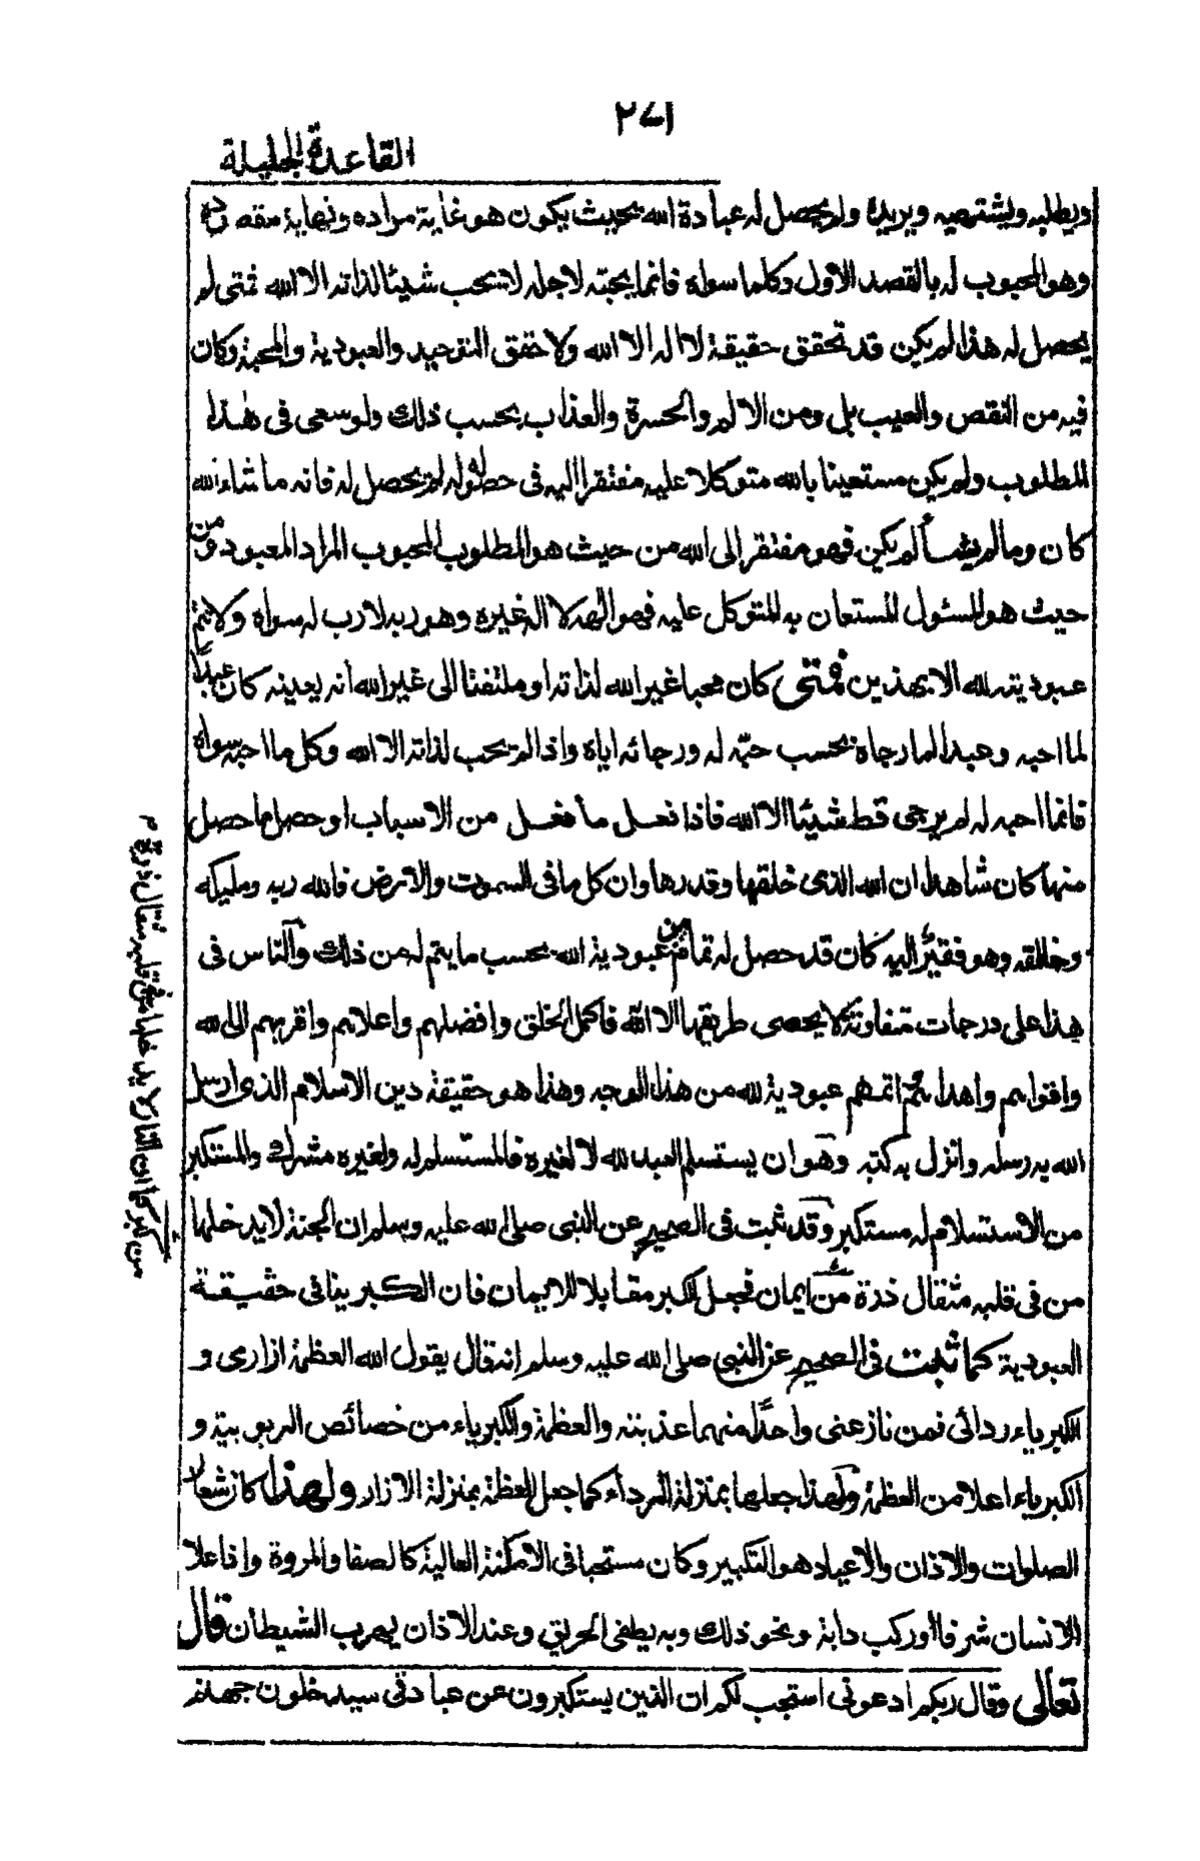 ٢٧١
القاعدة الجليلة
ويطلبه ويشتهيه ويريده ولم يحصل له عبادة الله بحيث يكون هو غاية مراده ونهاية مقصوده
وهو المحبوب له بالقصد الاول وكلما سواه فانما يحبّه لاجله لا يحب شيئا لذاته الا الله فمتى لم
يحصل له هذا لم يكن قد تحقق حقيقة لا اله الا الله ولا حقق التوحيد والعبودية والمحبة وكان
فيه من النقص والعيب بل ومن الالم والحسرة والعذاب بحسب ذلك ولو سعى فى هذا
المطلوب ولم يكن مستعينا بالله متوكلا عليه مفتقرا اليه فى حصوله لم يحصل له فانه ما شاء الله
كان وما لم يشأ لم يكن فهو مفتقر إلى الله من حيث هو المطلوب المحبوب المراد المعبود ومن
حيث هو المسئول المستعان به المتوكل عليه فهو الهه لا اله غيره وهو ربه لا رب له سواه ولا تتم
عبوديته لله الا بهذين فمتى كان محبا غير الله لذاته او ملتفتا الى غير الله أنه يعينه كان عبدًا
لما احبه وعبدا لما رجاه بحسب حبّه له ورجائه اياه واذا لم يحب لذاته الا الله وكل ما احبه سواه
فانما احبه له لم يرجى قط شيئا الا الله فاذا فعل ما فعل من الاسباب او حصل ما حصل
منها كان شاهدا ان الله الذى خلقها وقدرها وان كل ما فى السموت والارض فالله ربه ومليكه
وخالقه وهو فقير اليه كان قد حصل له تمام من عبودية الله بحسب ما يتم له من ذلك والناس فى
هذا على درجات متفاوتة لا يحصى طريقها الا الله فاكمل الخلق وافضلهم واعلاهم واقربهم الى الله
واقواهم واهداهم اتمهم عبودية لله من هذا الوجه وهذا هو حقيقة دين الاسلام الذى ارسل
الله به رسله وانزل به كتبه وهو ان يستسلم العبد لله لا لغيره فالمستسلم له ولغيره مشرك والمستكبر
من الاستسلام له مستكبر وقد ثبت فى الصحيح عن النبى صلى الله عليه وسلم ان الجنة لا يدخلها
من فى قلبه مثقال ذرة من ايمان فجعل الكبر مقابلا للايمان فان الكبر ينافى حقيقة
العبودية كما ثبت فى الصحيح عن النبى صلى الله عليه وسلم انه قال يقول الله العظمة ازارى و
الكبرياء ردائى فمن نازعنى واحدًا منهما عذبته والعظمة والكبرياء من خصائص الربوبية و
الكبرياء اعلا من العظمة ولهذا جعلها بمنزلة الرداء كما جعل العظمة بمنزلة الازار ولهذا كان شعار
الصلوات والاذان والاعياد هو التكبير وكان مستحبا فى الامكنة العالية كالصفا والمروة واذا علا
الانسان شرفا أو ركب دابة ونحو ذلك وبه يطفى الحريق وعند الاذان يهرب الشيطان قال
تعالى وقال ربكم ادعونى استجب لكم ان الذين يستكبرون عن عبادتى سيدخلون جهنم
من كبر كما ان النار لا يدخلها من فى قلبه مثقال ذرة